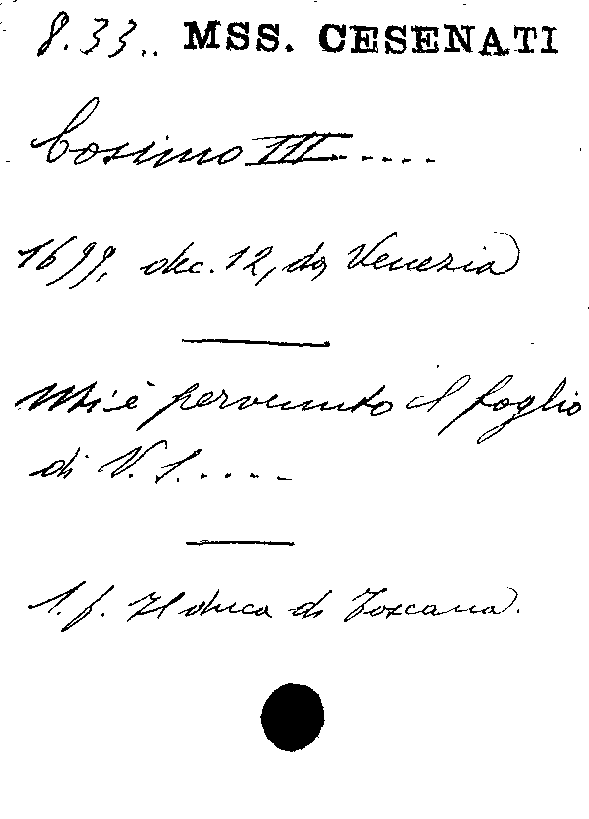 8.33.. MSS. CESENATI
Cosimo III.....
1699, dec. 12, da Venezia
Mi è pervenuto il foglio
di V. S.....
1. f. Il duca di Toscana.